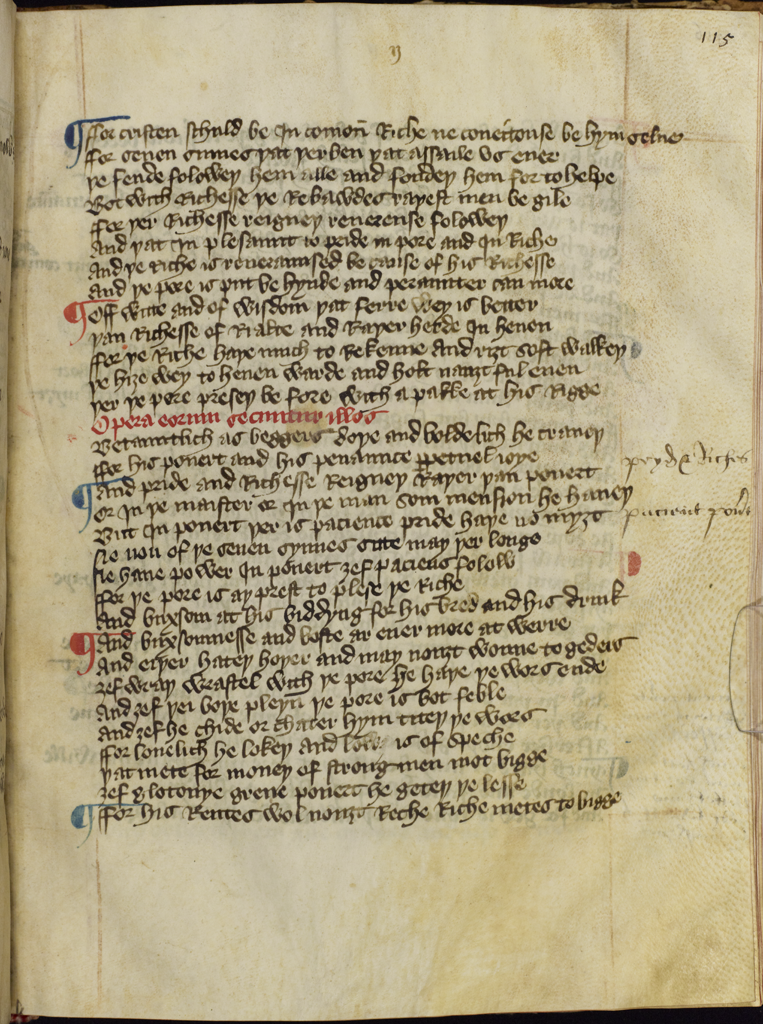 115
ꝩ
For cristen schuld be In comoñ Riche ne coueitouse be hym selue
For seuen sinnes yat yer ben yat assaile vs euer
ye fende foloweþ hem alle and fondeþ hem for to helpe
Bot with Richesse ye Rebawdes rayest men be gile
For yer Richesse reigneþ reuerense foloweþ
And yat In plesaunt to pride in pore and In Riche
And ye Riche is reueraunsed be cause of his Richesse
And ye pore is put be hynde and perauntter can more
Off witte and of wisdom yat ferre wey is better
yan Richesse of Rialte and Rayer herde In heuen
For ye Riche haþe much to Rekenne And riȝt soft walkeþ
ye hiȝe wey to heuen warde and holt nauȝt ful euen
yer ye pore preseþ be fore with a pakke at his Rigge
Opera eorum secuntur illos
Betauntlich as beggers doþe and boldelich he craueþ
For his pouert and his penaunce ꝑpetuel ioye
And pride and Richesse Reigneþ Rayer yan pouert
Or In ye maister or In ye man som mension he haueþ
But In pouert yer is pacience pride haþe no myȝt
Ne non of ye seuen synnes sitte may yer longe
Ne haue power In pouert ȝef paciens folow
For ye pore is ay prest to plese ye Riche
And buxsom at his biddyng for his bred and his drink
And buxsomnesse and boste ar euer more at werre
And eiþer hateþ hoþer and may nouȝt wonne to geders
ȝef wraþ wrastel with ye pore he haþe ye wors ende
And ȝef yei boþe pleyn ye pore is bot feble
And ȝef he chide or chater hym titeþ ye wors
For louelich he lokeþ and low is of speche
yat mete for money of strong men mot bigge
ȝef glotonye greue pouert he geteþ ye lesse
For his Rentes wol nouȝt Reche Riche metes to bigge
pryd & Riches
pacient